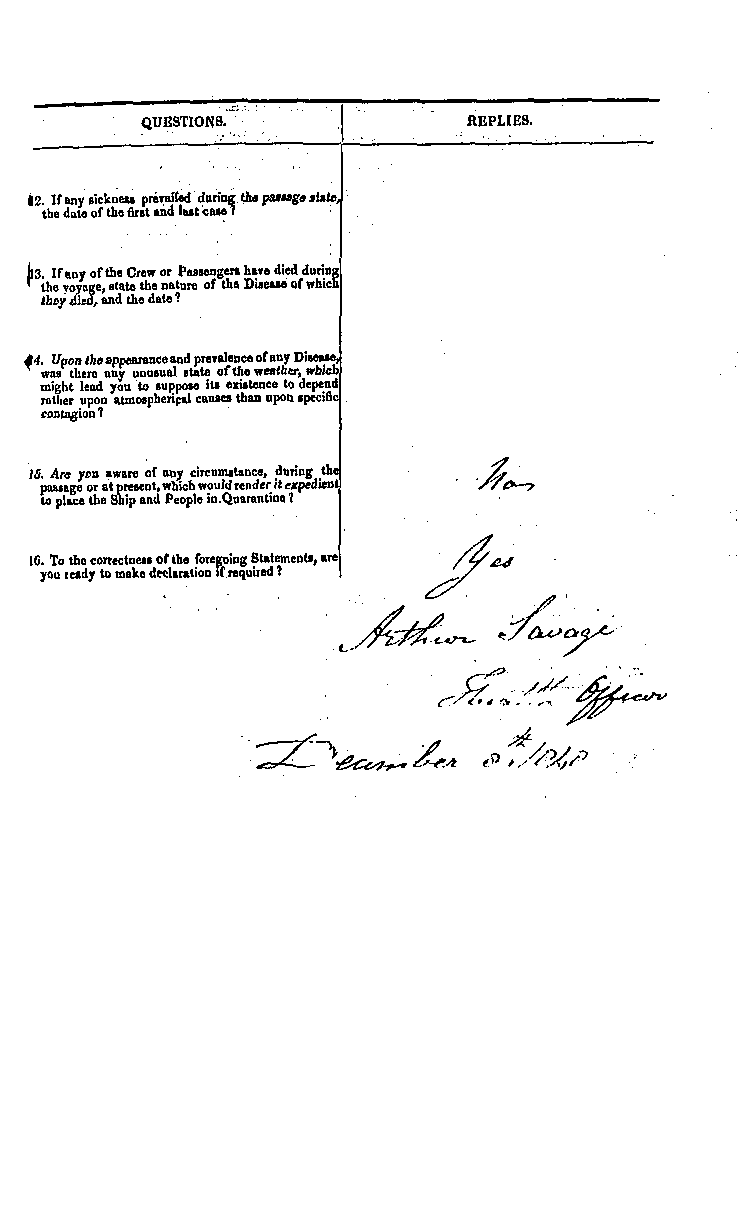 QUESTIONS.
REPLIES.
12. If any sickness prevailed during the passage state,
the date of the first and last case?
13. If any of the Crew or Passengers have died during
the voyage, state the nature of the Disease of which
they died, and the date?
14. Upon the appearance and prevalence of any Disease,
was there any unusual state of the weather, which
might lead you to suppose its existence to depend
rather upon atmospherical causes than upon specific
contagion?
15. Are you aware of any circumstance, during the
passage or at present, which would render it expedient
to place the Ship and People in Quarantine?
No
16. To the correctness of the foregoing Statements, are
you ready to make declaration if required?
Yes
Arthur Savage
Officer
December 8th